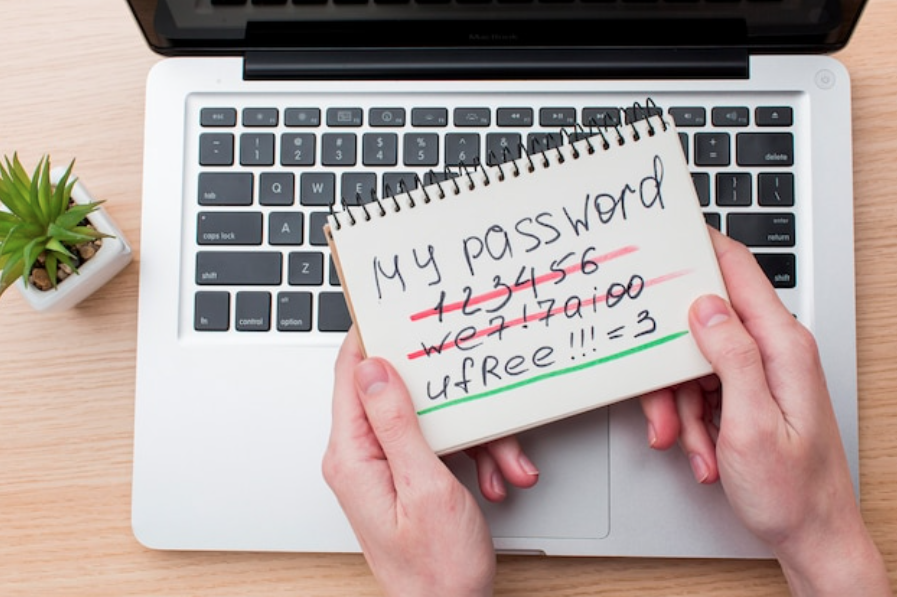 MacBook
~ ! @ # $ % ^ & + delete
` 1 2 3 4 5 6 =
tab Q W E } |
] \
caps lock A enter
return
shift Z shift
alt
fn control option
My password
123456
we7!7aioo
ufRee!!!=3